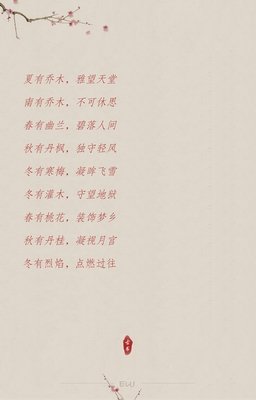 夏有乔木，雅望天堂
南有乔木，不可休思
春有幽兰，碧落人间
秋有丹枫，独守轻风
冬有寒梅，凝眸飞雪
冬有灌木，守望地狱
春有桃花，装饰梦乡
秋有丹桂，凝视月宫
冬有烈焰，点燃过往